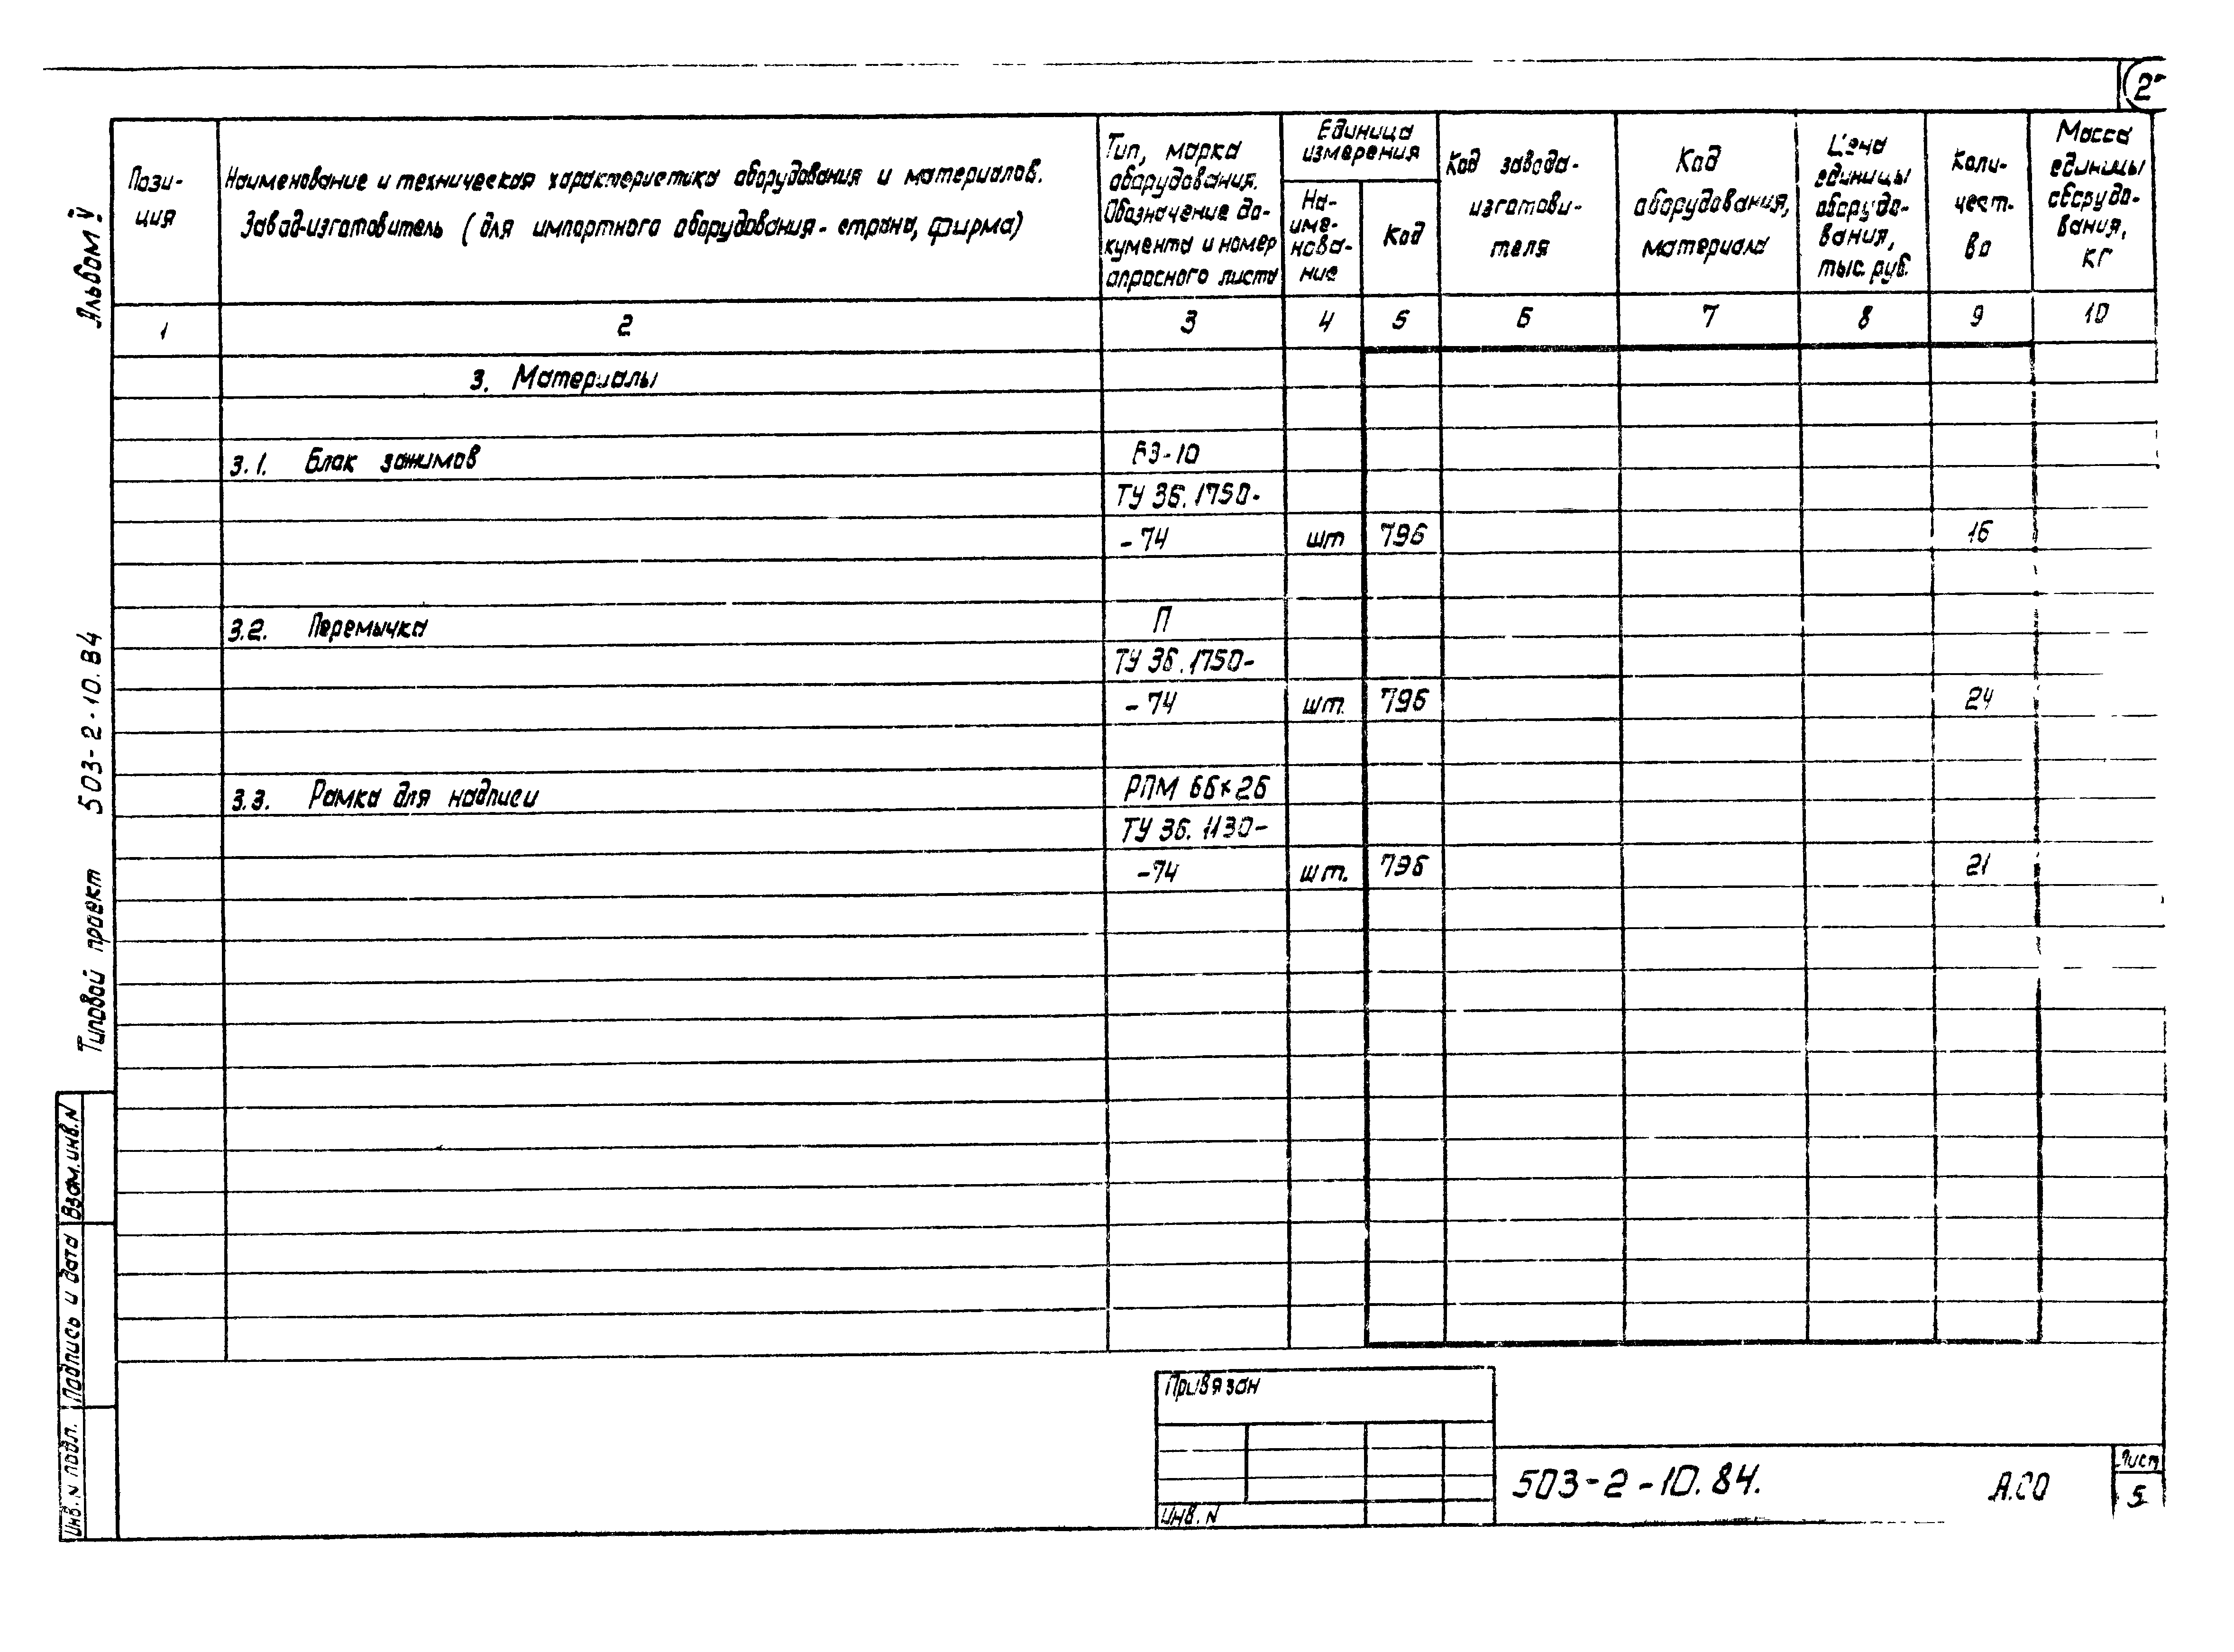 Альбом V
Типовой проект 503-2-10.84
Пози-
ция
Наименование и техническая характеристика оборудования и материалов.
Завод-изготовитель (для импортного оборудования - страна, фирма)
Тип, марка
оборудования.
Обозначение до-
кумента и номер
опросного листа
Единица
измерения
На-
име-
нова-
ние
Код
Код завода-
изготови-
теля
Код
оборудования,
материала
Цена
единицы
оборудо-
вания,
тыс. руб.
Коли-
чест-
во
Масса
единицы
оборудо-
вания,
кг
1 2 3 4 5 6 7 8 9 10
3. Материалы
3.1. Блок зажимов БЗ-10
ТУ 36.1750-
-74 шт 796 16
3.2. Перемычка П
ТУ 36.1750-
-74 шт. 796 24
3.3. Рамка для надписи РПМ 66×26
ТУ 36.1130-
-74 шт. 796 21
Взам.инв.N
Подпись и дата
Инв.N подл.
Привязан
Инв.N
503-2-10.84. А.СО
Лист
5